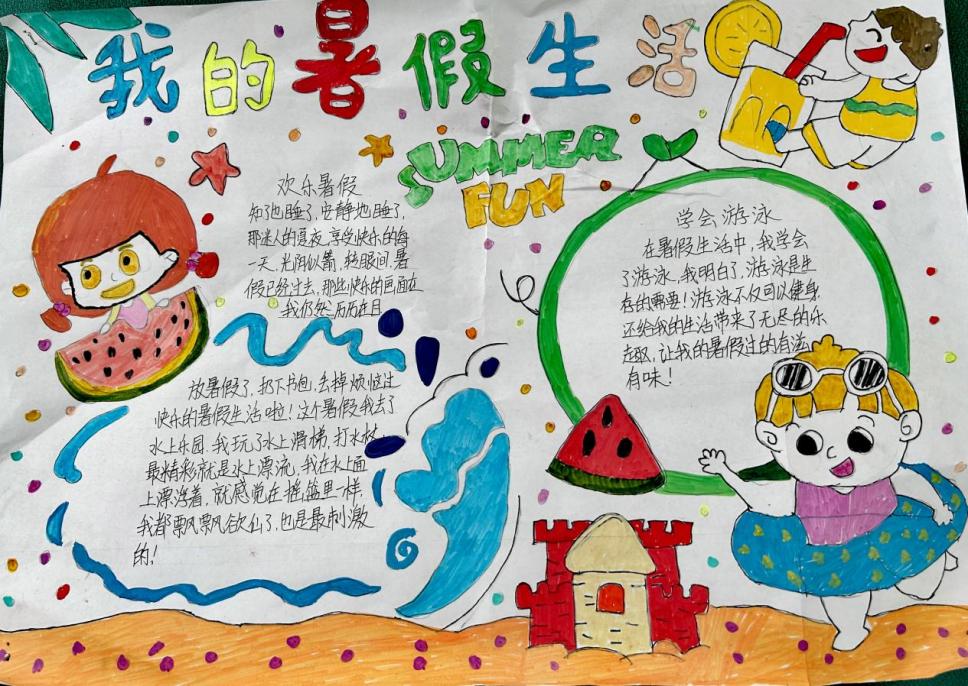 我的暑假生活
SUMMER
FUN
欢乐暑假
知了也睡了，安静地睡了，
那迷人的夏夜，享受快乐的每
一天，光阴似箭，转眼间，暑
假已经过去，那些快乐的画面在
我仍然历历在目
放暑假了，扔下书包，去掉烦恼过
快乐的暑假生活啦！这个暑假我去了
水上乐园，我玩了水上滑梯，打水枪，
最精彩就是水上漂流，我在水上面
上漂浮着，就感觉在摇篮里一样，
我都飘飘欲仙了，也是最刺激
的！
学会游泳
在暑假生活中，我学会
了游泳，我明白了，游泳是生
存的需要！游泳不仅可以健身
还给我的生活带来了无尽的乐
趣，让我的暑假过的有滋
有味！